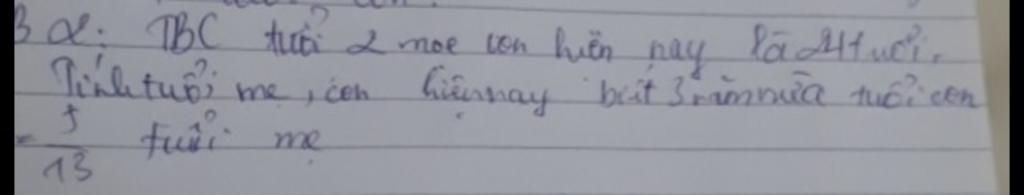 B2: TBC tuổi 2 mẹ con hiện nay là 24 tuổi.
Tính tuổi mẹ, con hiện nay biết 3 năm nữa tuổi con
= 5/13 tuổi mẹ